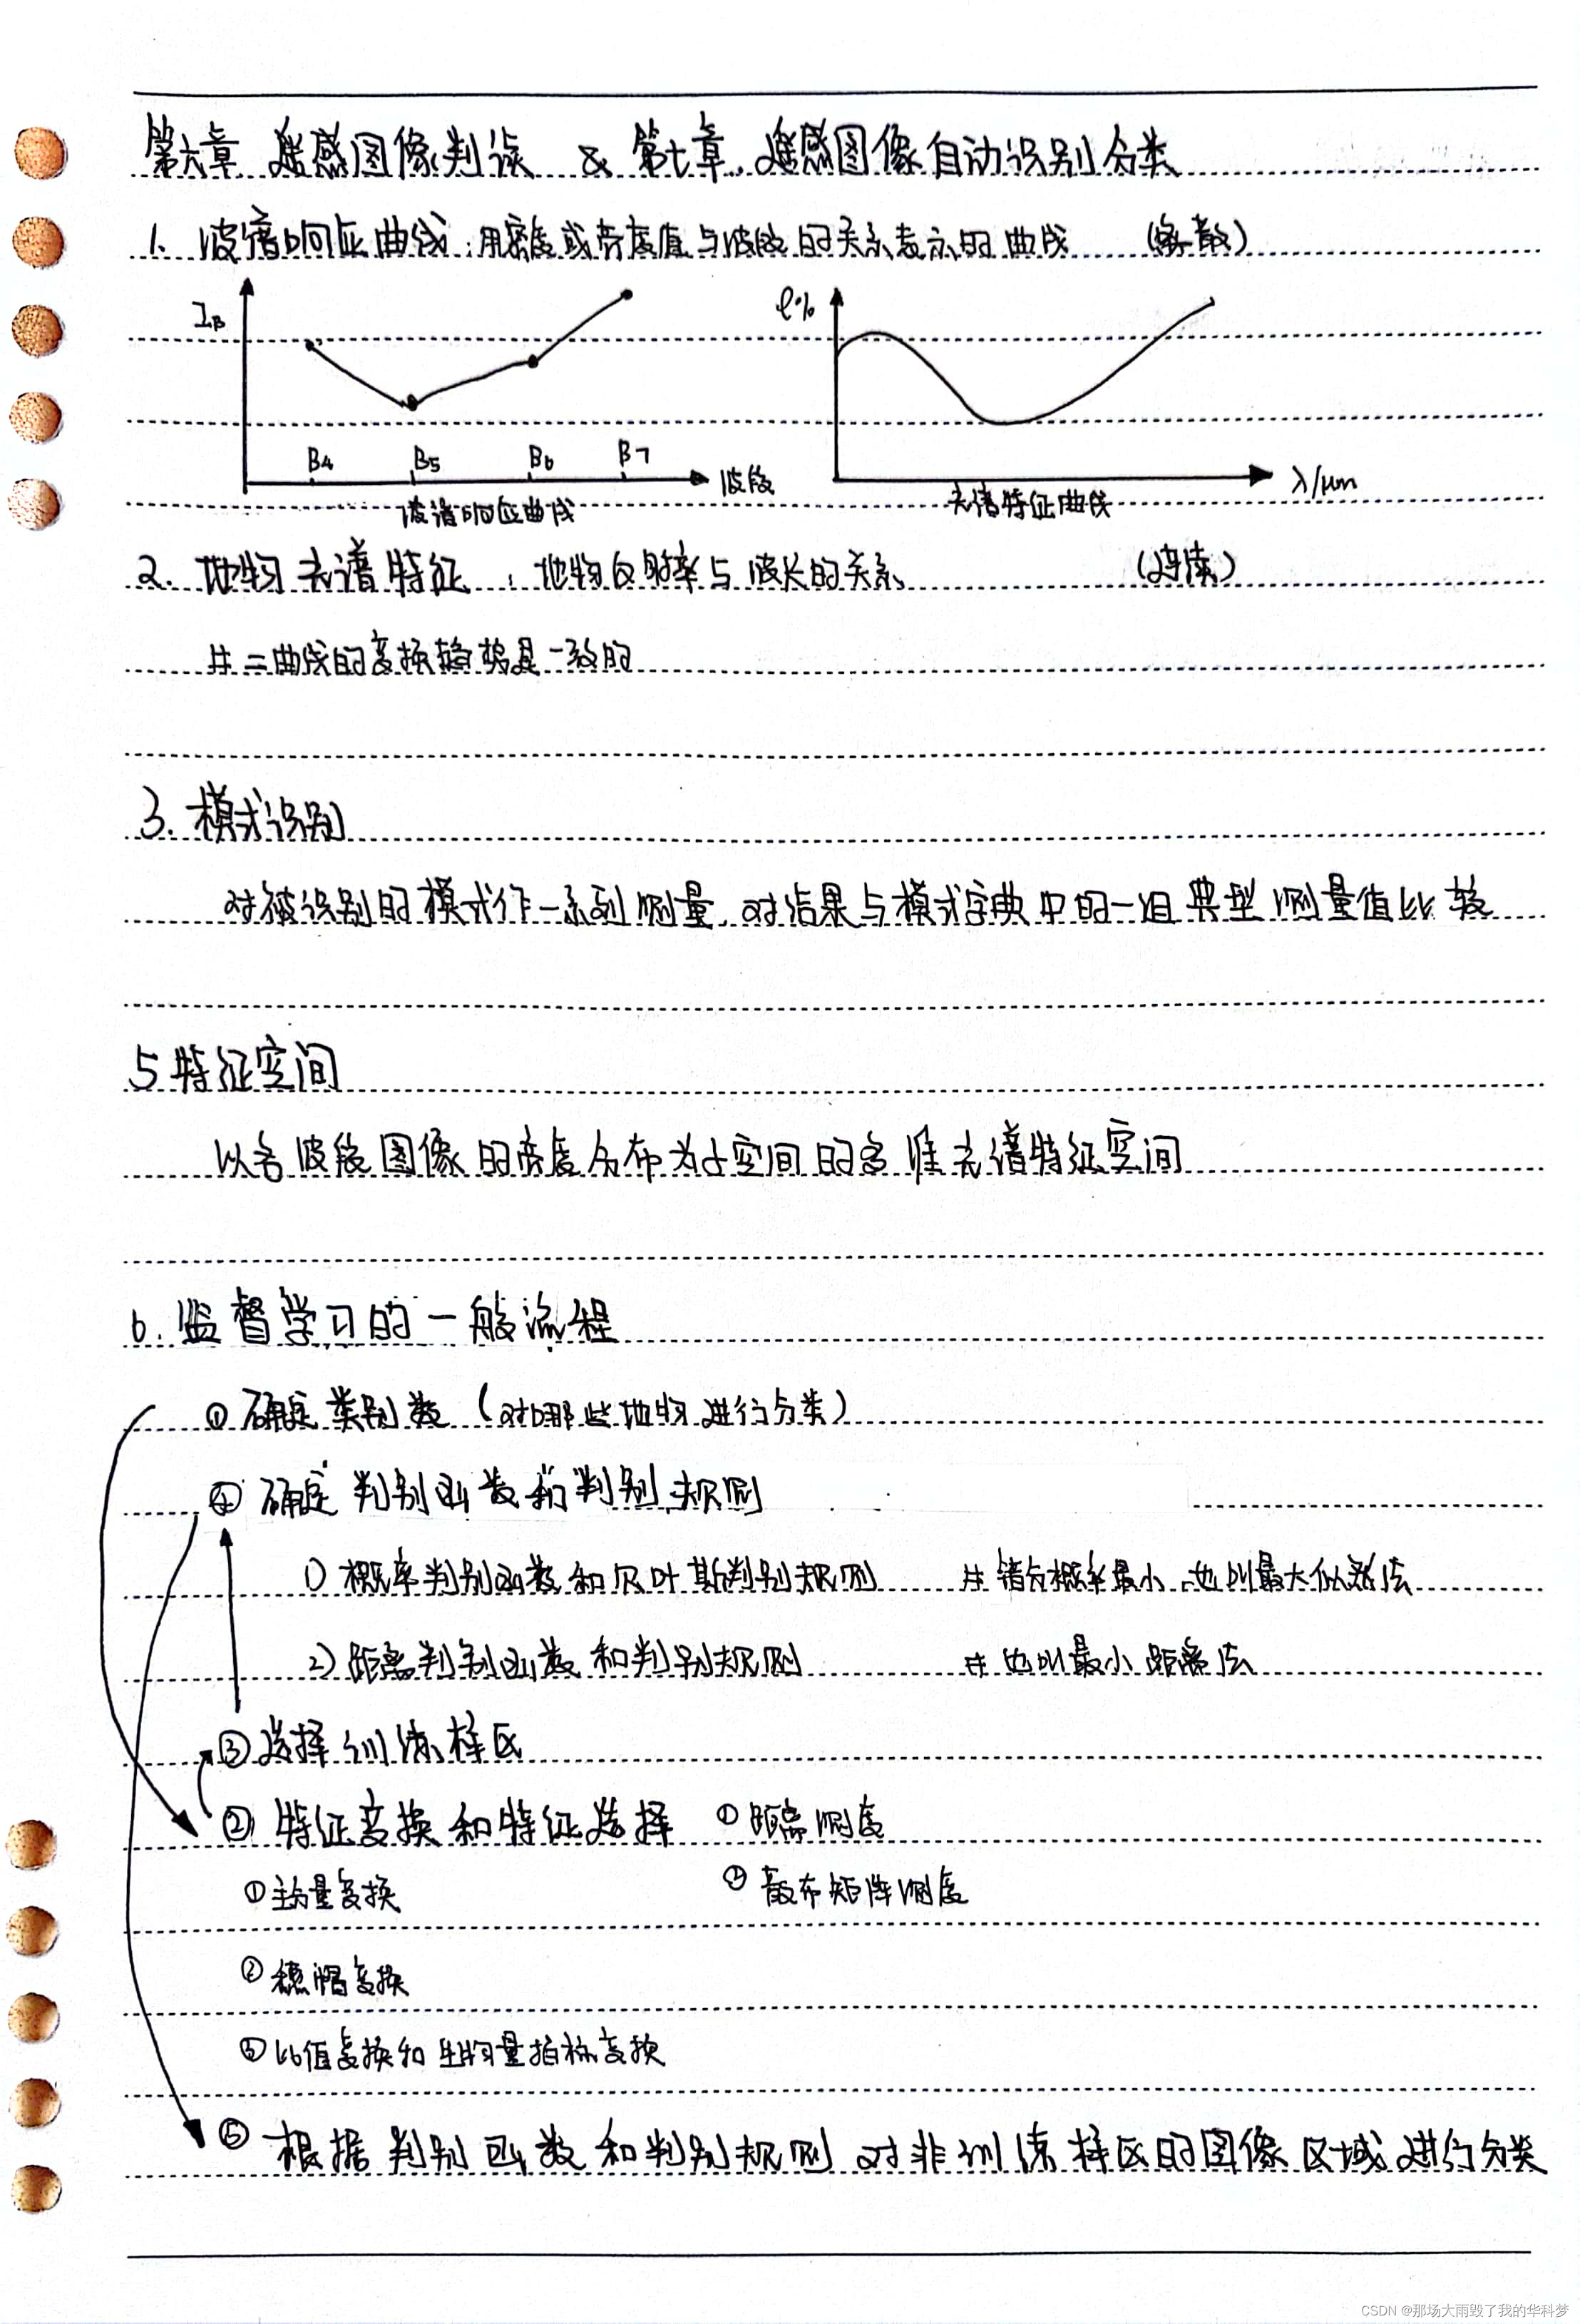 第六章 遥感图像判读 & 第七章 遥感图像自动识别分类
1. 波谱响应曲线:用密度或亮度值与波段的关系表示的曲线 (离散)
IB
B4 B5 B6 B7 波段
波谱响应曲线
ρ%
λ/μm
光谱特征曲线
2. 地物光谱特征:地物反射率与波长的关系 (连续)
# 二曲线的变换趋势是一致的
3. 模式识别
对被识别的模式作一系列测量,对结果与模式字典中的一组典型测量值比较
5 特征空间
以各波段图像的亮度分布为子空间的多维光谱特征空间
6. 监督学习的一般流程
① 确定类别数 (对哪些地物进行分类)
④ 确定判别函数和判别规则
1) 概率判别函数和贝叶斯判别规则 # 错分概率最小,也叫最大似然法
2) 距离判别函数和判别规则 # 也叫最小距离法
③ 选择训练样区
② 特征变换和特征选择 ① 距离测度
① 主分量变换 ② 散布矩阵测度
② 穗帽变换
③ 比值变换和生物量指标变换
⑤ 根据判别函数和判别规则对非训练样区的图像区域进行分类
CSDN @那场大雨毁了我的华科梦